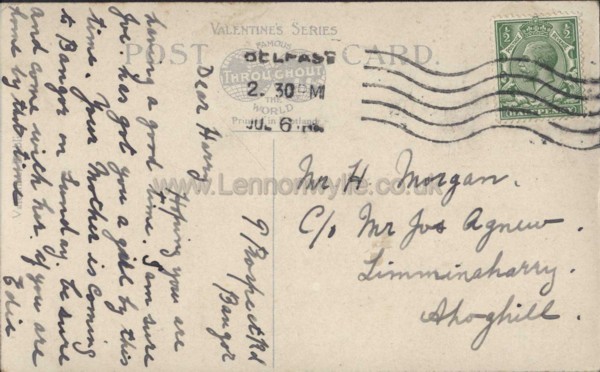 VALENTINE'S SERIES
POST CARD.
FAMOUS
THROUGHOUT
THE
WORLD
Printed in Scotland
BELFAST
2. 30 PM
JUL 6
HALFPENNY
9 Prospect Rd
Bangor
Dear Harry
Hoping you are
having a good time. I am sure
Joe has got you a girl by this
time. Your Mother is coming
to Bangor on Sunday. be sure
and come with her if you are
home by that time
Edie
Mr H. Morgan.
C/o Mr Jos Agnew.
Limminaharry.
Ahoghill.
www.Lennonwylie.co.uk